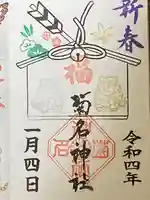 新春
福
菊名神社
令和四年
一月四日